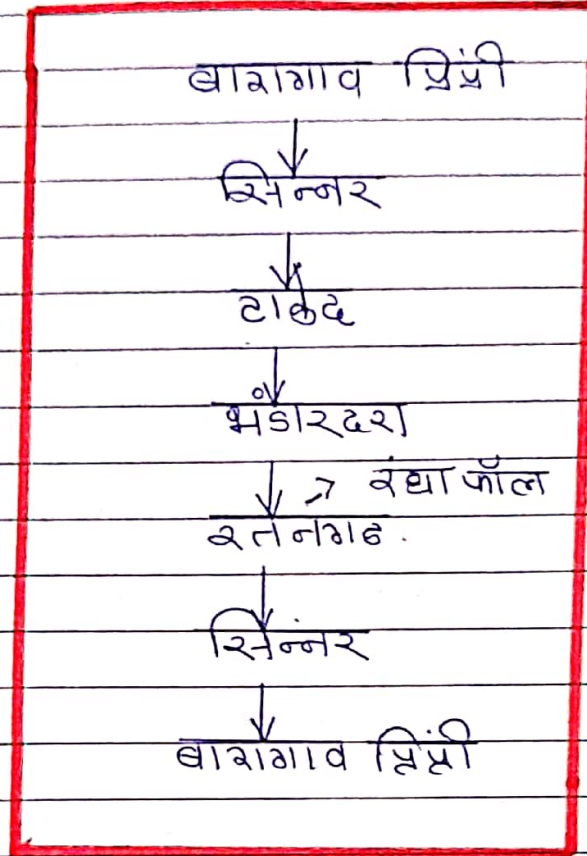 बारागाव प्रिंप्री
सिन्नर
टाकेद
भंडारदरा
रंधा फॉल
रतनगड.
सिन्नर
बारागाव प्रिंप्री